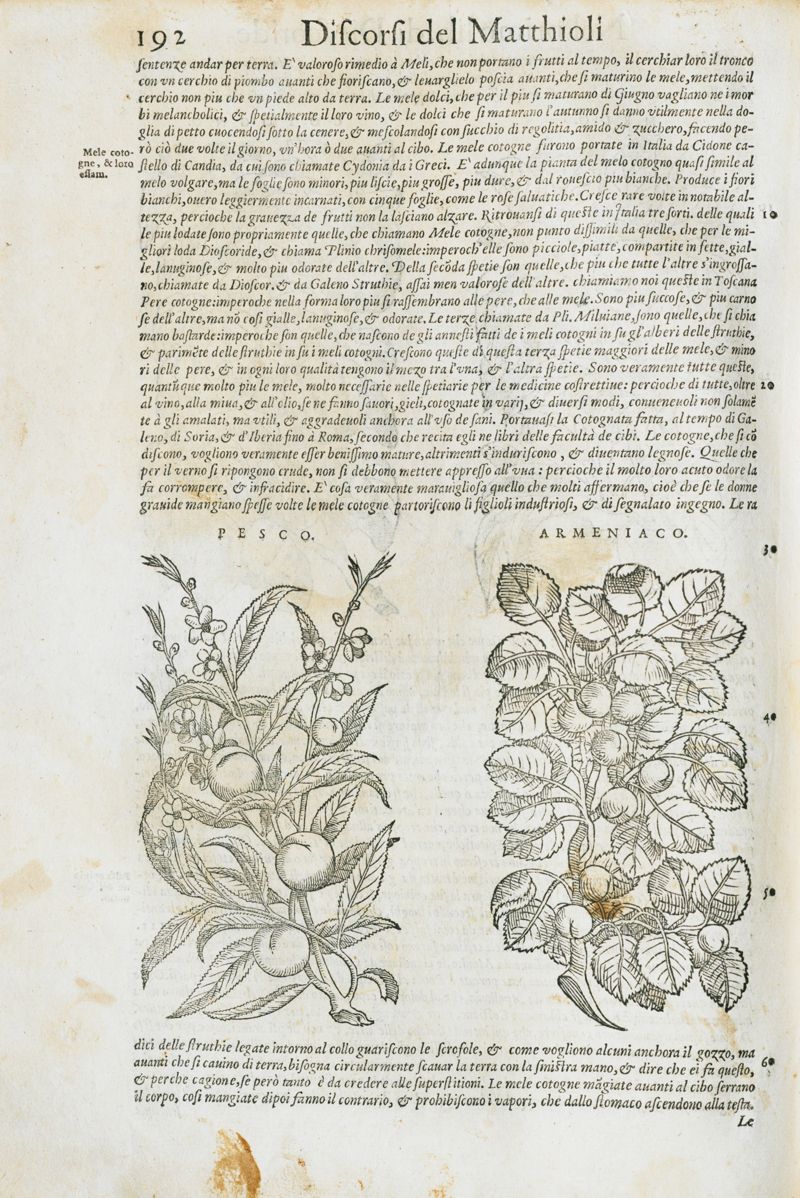 192 Diſcorſi del Matthioli
ſentenze andar per terra. E' valoroſo rimedio à Meli, che non portano i frutti al tempo, il cerchiar loro il tronco
con vn cerchio di piombo auanti che fioriſcano, & leuarglielo poſcia auanti, che ſi maturino le mele, mettendo il
cerchio non piu che vn piede alto da terra. Le mele dolci, che per il piu ſi maturano di Giugno vagliano ne i mor
bi melancholici, & ſpetialmente il loro vino, & le dolci che ſi maturano l'autunno ſi danno vtilmente nella do-
glia di petto cuocendoſi ſotto la cenere, & meſcolandoſi con ſucchio di regolitia, amido & zucchero, facendo pe-
Mele coto-
gne, & loro
eſſam.
rò ciò due volte il giorno, vn'hora ò due auanti al cibo. Le mele cotogne furono portate in Italia da Cidone ca-
ſtello di Candia, da cui ſono chiamate Cydonia da i Greci. E' adunque la pianta del melo cotogno quaſi ſimile al
melo volgare, ma le foglie ſono minori, piu liſcie, piu groſſe, piu dure, & dal roueſcio piu bianche. Produce i fiori
bianchi, ouero leggiermente incarnati, con cinque foglie, come le roſe ſaluatiche. Creſce rare volte in notabile al-
tezza, percioche la grauezza de frutti non la laſciano alzare. Ritrouanſi di queſte in Italia tre ſorti. delle quali 10
le piu lodate ſono propriamente quelle, che chiamano Mele cotogne, non punto diſſimili da quelle, che per le mi-
gliori loda Dioſcoride, & chiama Plinio chriſomele: imperoch'elle ſono picciole, piatte, compartite in fette, gial-
le, lanuginoſe, & molto piu odorate dell'altre. Della ſecōda ſpetie ſon quelle, che piu che tutte l'altre s'ingroſſa-
no, chiamate da Dioſcor. & da Galeno Struthie, aſſai men valoroſe dell'altre. chiamiamo noi queſte in Toſcana
Pere cotogne: imperoche nella forma loro piu ſi raſſembrano alle pere, che alle mele. Sono piu ſuccoſe, & piu carno
ſe dell'altre, ma nō coſi gialle, lanuginoſe, & odorate. Le terze chiamate da Pli. Miluiane, ſono quelle, che ſi chia
mano baſtarde: imperoche ſon quelle, che naſcono de gli anneſti fatti de i meli cotogni in ſu gl'alberi delle ſtruthie,
& parimēte delle ſtruthie in ſu i meli cotogni. Creſcono queſte di queſta terza ſpetie maggiori delle mele, & mino
ri delle pere, & in ogni loro qualità tengono il mezo tra l'vna, & l'altra ſpetie. Sono veramente tutte queſte,
quantūque molto piu le mele, molto neceſſarie nelle ſpetiarie per le medicine coſtrettiue: percioche di tutte, oltre 20
al vino, alla miua, & all'olio, ſe ne fanno ſauori, gieli, cotognate in varij, & diuerſi modi, conueneuoli non ſolamē
te à gli amalati, ma vtili, & aggradeuoli anchora all'vſo de ſani. Portauaſi la Cotognata fatta, al tempo di Ga-
leno, di Soria, & d'Iberia fino à Roma, ſecondo che recita egli ne libri delle facultà de cibi. Le cotogne, che ſi cō
diſcono, vogliono veramente eſſer beniſſimo mature, altrimenti s'induriſcono, & diuentano legnoſe. Quelle che
per il verno ſi ripongono crude, non ſi debbono mettere appreſſo all'vua: percioche il molto loro acuto odore la
fa corrompere, & infracidire. E' coſa veramente marauiglioſa quello che molti affermano, cioè che ſe le donne
grauide mangiano ſpeſſe volte le mele cotogne partoriſcono li figlioli induſtrioſi, & di ſegnalato ingegno. Le ra
PESCO. ARMENIACO.
30
40
50
dici delle ſtruthie legate intorno al collo guariſcono le ſcrofole, & come vogliono alcuni anchora il gozzo, ma
auanti che ſi cauino di terra, biſogna circularmente ſcauar la terra con la ſiniſtra mano, & dire che ei fa queſto, 60
& perche cagione, ſe però tanto è da credere alle ſuperſtitioni. Le mele cotogne māgiate auanti al cibo ſerrano
il corpo, coſi mangiate dipoi fanno il contrario, & prohibiſcono i vapori, che dallo ſtomaco aſcendono alla teſta.
Le